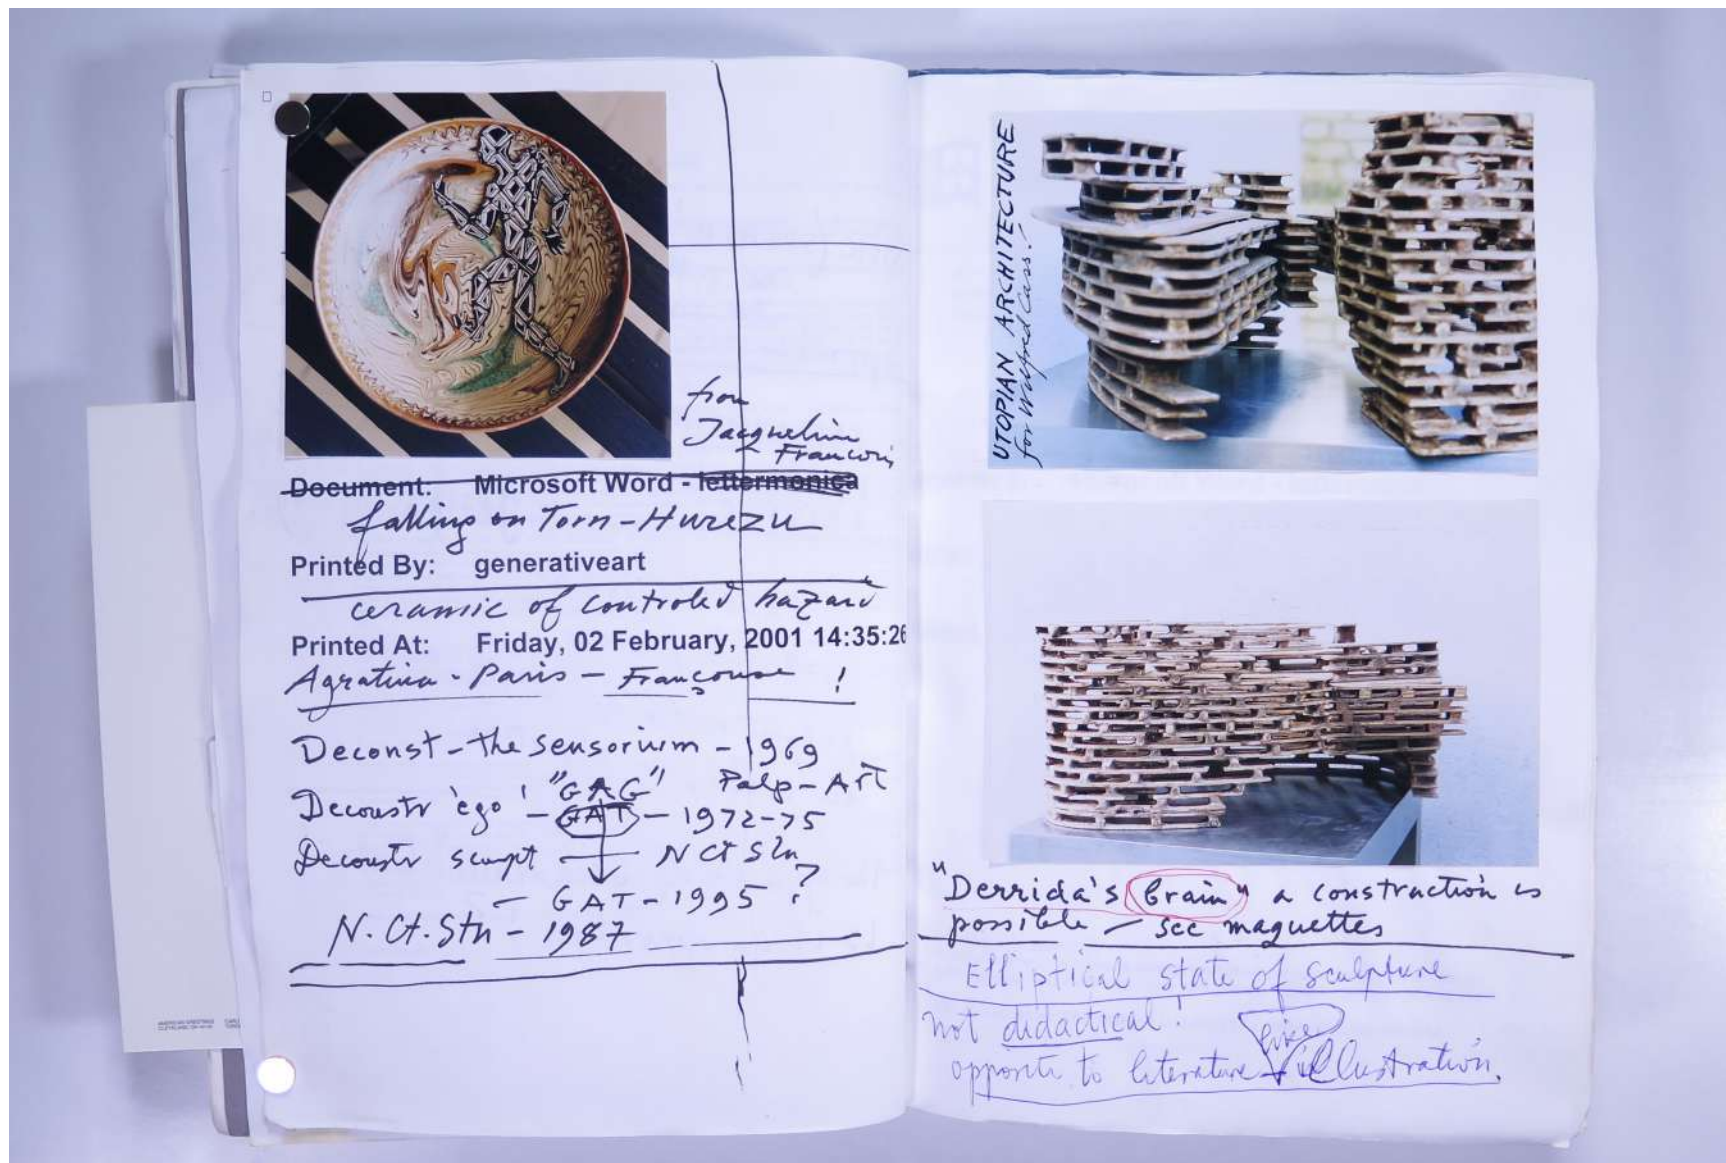 from
Jacqueline
Francois
Document: Microsoft Word - lettermonica
falling on Torn-Hurezu
Printed By: generativeart
ceramic of controled hazard
Printed At: Friday, 02 February, 2001 14:35:26
Agratina - Paris - Françouse !
Deconst - the sensorium - 1969
"GAG" Palp-Art
Deconstr 'ego' - GAT - 1972-75
Deconstr sculpt - N Ct Stn
- GAT - 1995 ?
N. Ct. Stn - 1987
AMERICAN GREETINGS
UTOPIAN ARCHITECTURE
for Wilfred Cass!
"Derrida's brain" a construction is
possible - see maquettes
Elliptical state of sculpture
not didactical!
like
opposite to literature illustration.